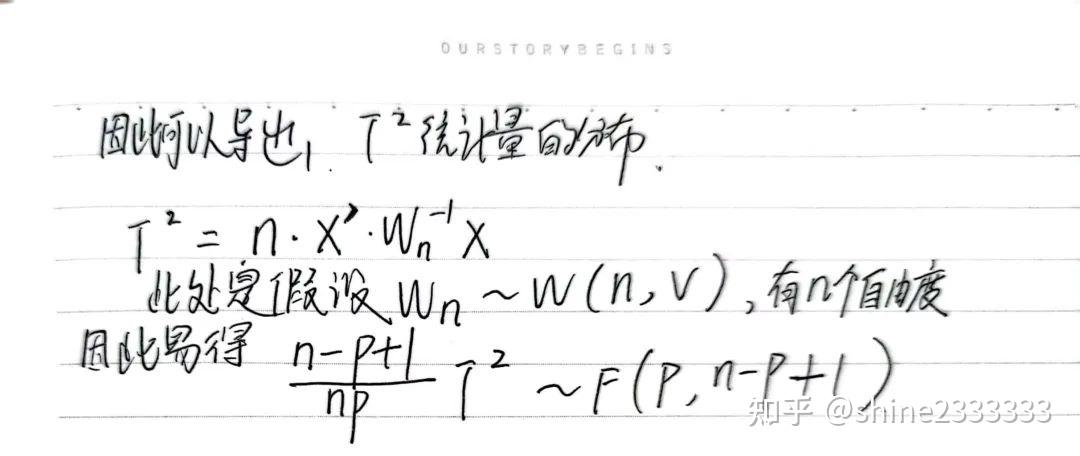 OURSTORYBEGINS
因此可以导出, T² 统计量的分布.
T² = n · X' · Wₙ⁻¹ X
此处是假设 Wₙ ~ W(n, V), 有n个自由度
因此易得 (n-p+1)/(np) T² ~ F(p, n-p+1)
知乎 @shine2333333